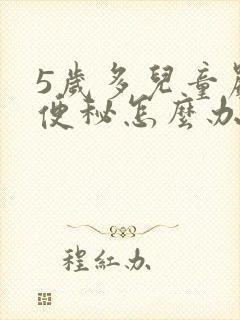 5歲多兒童
便秘怎麼办
程紅办